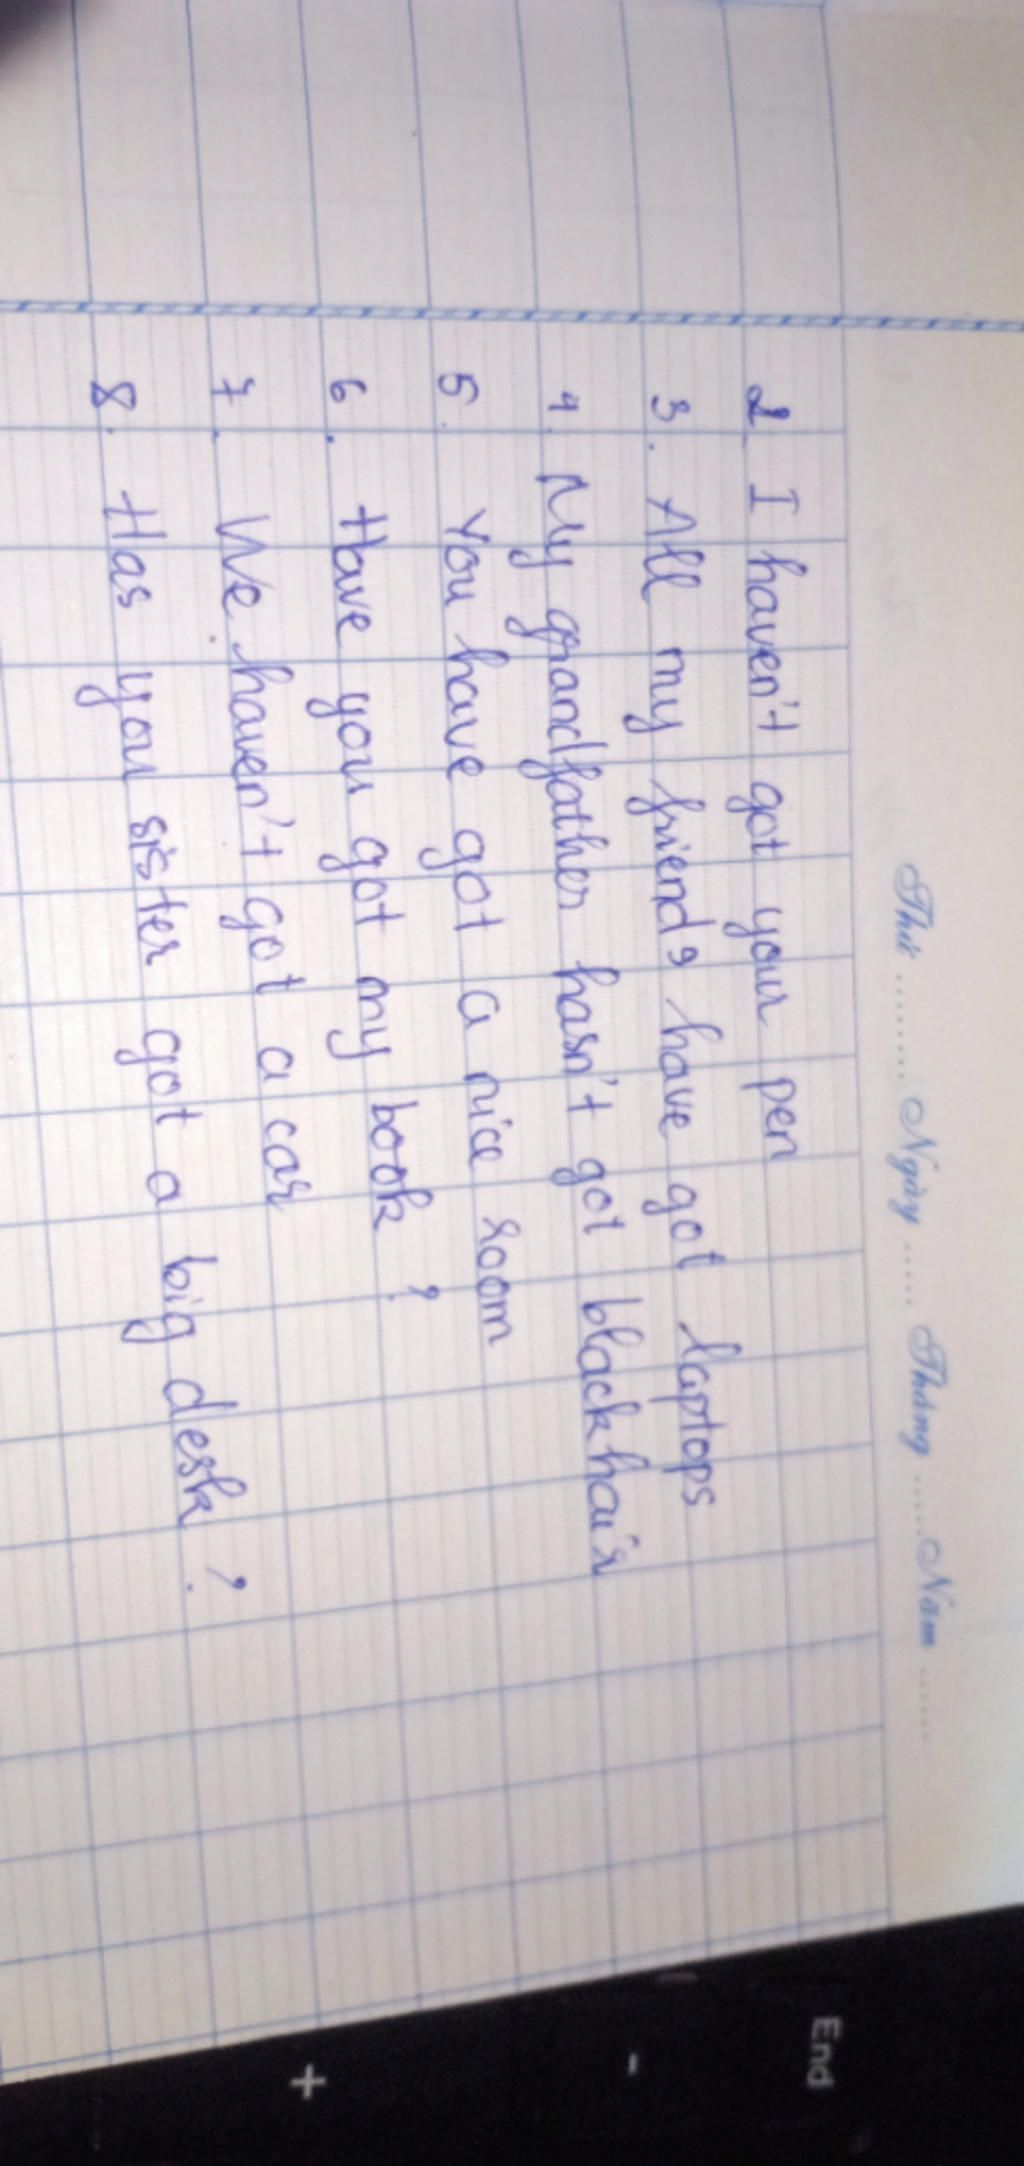 Thứ ........ Ngày ...... Tháng ...... Năm ......
2. I haven't got your pen
3. All my friends have got laptops
4. My grandfather hasn't got black hair
5. You have got a nice room
6. Have you got my book ?
7. We haven't got a car
8. Has your sister got a big desk ?
End
-
+